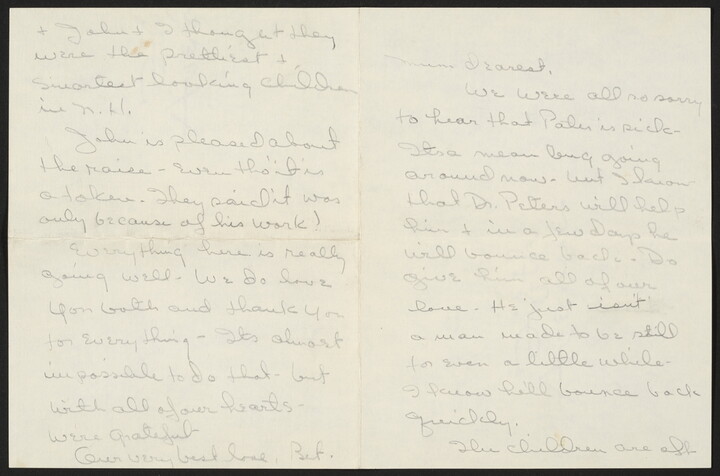 Mum dearest,
We were all so sorry
to hear that Pater is sick-
Its a mean bug going
around now - but I know
that Dr. Peters will help
him + in a few days he
will bounce back - Do
give him all of our
love - He just isn't
a man made to be still
for even a little while -
I know he'll bounce back
quickly.
The children are off
+ John + I thought they
were the prettiest +
smartest looking children
in N.H.
John is pleased about
the raise - even tho' it is
a token. They said it was
only because of his work!
Everything here is really
going well - We do love
you both and thank you
for everything - Its almost
impossible to do that - but
with all of our hearts -
we're grateful
Our very best love, Bet.